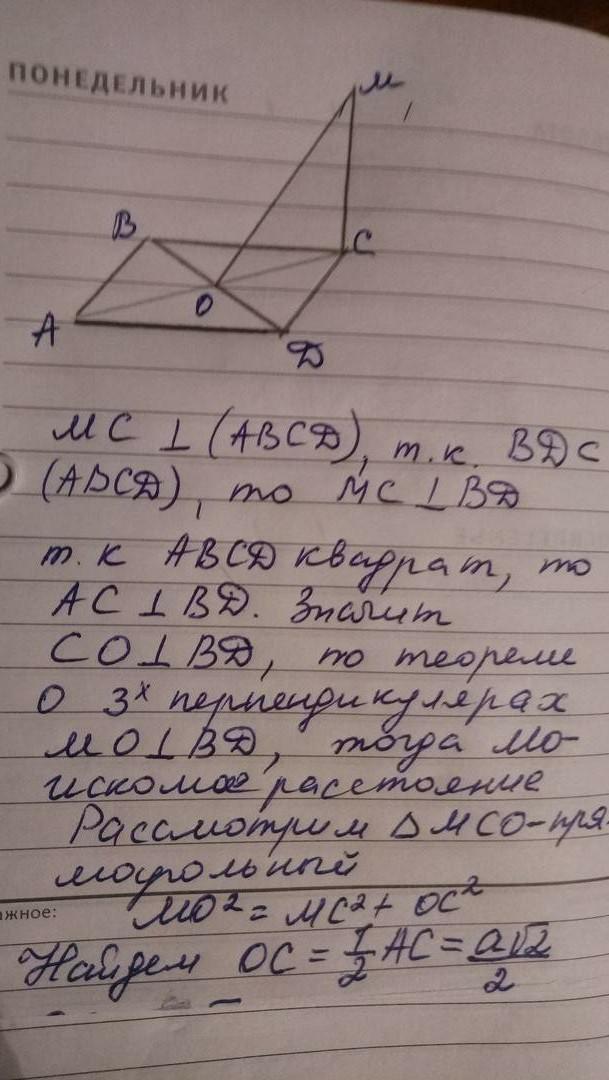 ПОНЕДЕЛЬНИК
M
B
C
O
A
D
MC ⊥ (ABCD), т.к. BD ⊂
(ABCD), то MC ⊥ BD
т.к ABCD квадрат, то
AC ⊥ BD. Значит
CO ⊥ BD, по теореме
о 3х перпендикулярах
MO ⊥ BD, тогда MO-
искомое расстояние
Рассмотрим △ MCO - пря-
моугольный
ажное:
MO² = MC² + OC²
Найдем OC = 1/2 AC = a√2/2